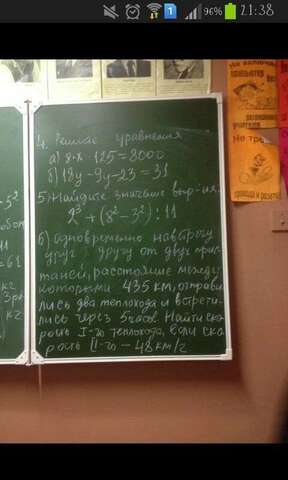 96% 21:38
4. Решите уравнения
а) 8·х·125=8000
б) 18у-9у-23=31
5) Найдите значение выр-ия:
2³+(8²-3²):11
6) одновременно навстречу
друг другу от двух прис-
таней, расстояние между
которыми 435 км, отправи
лись два теплохода и встрети
лись через 5 часов. Найти ско
рость I-го теплохода, если ско
рость II-го — 48 км/г